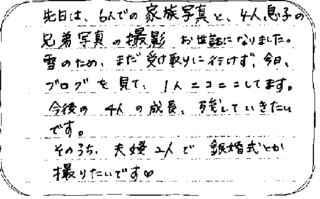 先日は、6人での家族写真と、4人息子の
兄弟写真の撮影 お世話になりました。
雪のため、まだ受け取りに行けず、今日、
ブログを見て、1人ニコニコしてます。
今後の4人の成長、残していきたい
です。
そのうち、夫婦2人で 銀婚式とか
撮りたいです♡